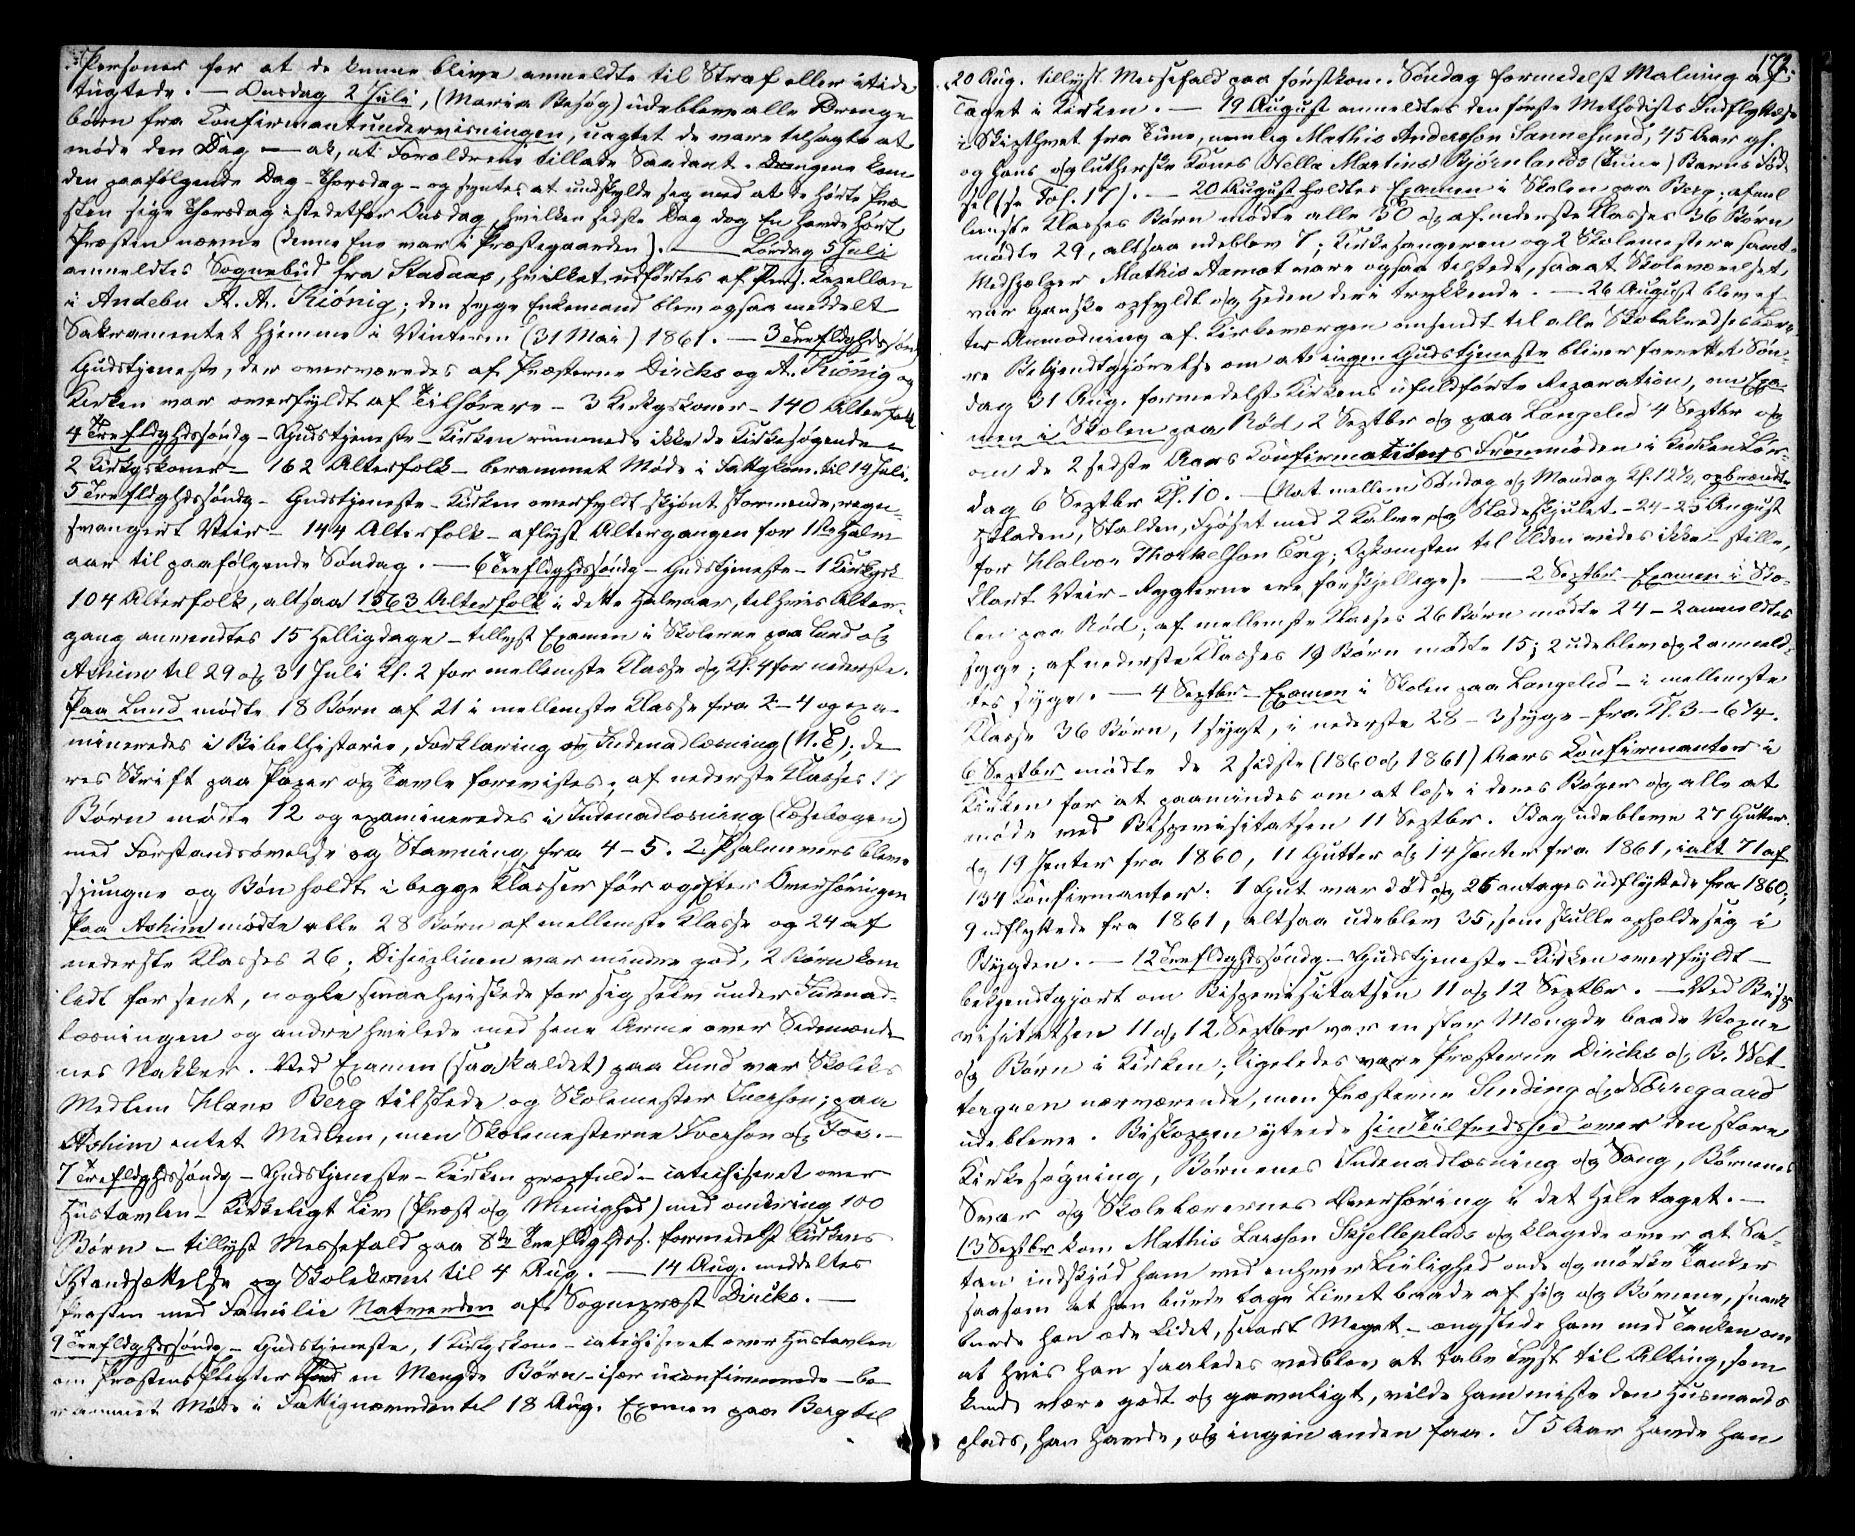 Personer for at de kunne blive anmeldte til Straf eller itide
tugtede. — Onsdag 2 Juli, (Maria Besøg) udebleve alle Drenge-
børn fra Confirmantundervisningen, uagtet de vare tilsagte at
møde den Dag — ak, at Forældrene tillade Saadant. Drengene kom
den paafølgende Dag – Thorsdag – og syntes at undskylde sig med at de hørte Præ-
sten sige Thorsdag istedetfor Onsdag, hvilken sidste Dag dog En havde hørt
Præsten nævne (denne Ene var i Præstegaarden). — Lørdag 5 Juli
anmeldtes Sognebud fra Stadaas, hvilket udførtes af Pers. Capellan
i Andebu A. A. Kiønig; den syge Enkemand blev ogsaa meddelt
Sakramentet hjemme i Vinteren (31 Mai) 1861. — 3 Trefldghdssønd
Gudstjeneste, der overværedes af Præsterne Dircks og A. Kiønig og
Kirken var overfyldt af Tilhørere – 3 Kirkgskoner – 140 Alterfolk
4 Trefldghdssøndg – Gudstjeneste – Kirken rummede ikke de Kirkesøgende –
2 Kirkgskoner – 162 Alterfolk – berammet Møde i Fattgkom. til 14 Juli.
5 Trefldghdssøndg – Gudstjeneste – Kirken overfyldt skjønt stormende, regn-
svangert Veir – 144 Alterfolk – aflyst Altergangen for 1ste Halv-
aar til paafølgende Søndag. — 6 Trefldghdssøndg – Gudstjeneste – 1 Kirkgsk
104 Alterfolk, altsaa 1563 Alterfolk i dette Halvaar, til hvis Alter-
gang anvendtes 15 Helligdage – tillyst Examen i Skolerne paa Lund og
Ashim til 29 og 31 Juli Kl. 2 for mellemste Klasse og Kl. 4 for nederste.
Paa Lund mødte 18 Børn af 21 i mellemste Klasse fra 2–4 og exa-
mineredes i Bibelhistorie, Forklaring og Indenadlæsning (N. T); de
res Skrift paa Papir og Tavle forevistes; af nederste Klasses 17
Børn mødte 12 og examineredes i Indenadlæsning (Læsebogen)
med Forstandsøvelse og Stavning fra 4–5. 2 Psalmevers bleve
sjungne og Bøn holdt i begge Klasser før og efter Overhøringen
Paa Ashim mødte alle 28 Børn af mellemste Klasse og 24 af
nederste Klasses 26; Disciplinen var mindre god, 2 Børn kom
lidt for sent, nogle smaahviskede for sig selv under Indenad-
læsningen og andre hvilede med sine Arme over Sidemænde-
nes Nakker. Ved Examen (saakaldet) paa Lund var Skolekos
Medlem Hans Berg tilstede og Skolemester Iverson; paa
Ashim intet Medlem, men Skolemesterne Iverson og Foe. –
7 Trefldghdssøndg – Gudstjeneste – Kirken propfuld – catechiseret over
Hustavlen – Kirkeligt Liv (Præst og Menighed) med omkring 100
Børn – tillyst Messefald paa 8de Trefldighdss. formedelst Kirkens
Istandsættelse og Skolekom. til 4 Aug. — 14 Aug. meddeltes
Præsten med Familie Natverden af Sognepræst Dircks. —
9 Trefldghdssøndg – Gudstjeneste, 1 Kirkgskone – catechiseret over Hustavlen
om Præstens Pligter med en Mængde Børn – især uconfirmerede – be-
rammet Møde i Fattignævnden til 18 Aug. Examen paa Berg til
172.
20 Aug. tillyst Messefald paa førstkom. Søndag formedelst Malning af
Taget i Kirken. — 19 August anmeldtes den første Methodists Indflyttelse
i Skipthvet fra Tune, nemlig Mathis Anderssøn Sannesund, 45 Aar gl.
og hans og lutherske Kones Nella Martine Bjørnlands (Tune) Barns Fød-
sel (se Fol. 17). — 20 August holdtes Examen i Skolen paa Berg; af mel
lemste Klasses Børn mødte alle 30 og af nederste Klasses 36 Børn
mødte 29, altsaa udeblev 7; Kirkesangeren og 2 Skolemestere samt
Medhjelper Mathis Aamot vare ogsaa tilstede, saaat Skoleværelset
var ganske opfyldt og Heden deri trykkende. — 26 August blev ef-
ter Anmodning af Kirkeværgen omsendt til alle Skolekredses Læ-
re Bekjendtgjørelse om at ingen Gudstjeneste bliver forrettet Søn-
dag 31 Aug. formedelst Kirkens ufuldførte Reparation, om Exa-
men i Skolen paa Rød 2 Septbr og paa Langelid 4 Septbr og
om de 2 sidste Aars Confirmanters Fremmøden i Kirken Lør-
dag 6 Septbr Kl. 10. — (Nat mellem Søndag og Mandag Kl. 12½ opbrændte
Laden, Stalden, Fjøset med 2 Kalve og Slædeskjulet – 24–25 August
for Halvor Thorkelssøn Eng; Opkomsten til Ilden vides ikke – stille,
klart Veir – Rygterne ere forskjellige). — 2 Septbr Examen i Sko-
len paa Rød; af mellemste Klasses 26 Børn mødte 24 – 2 anmeldtes
syge; af nederste Klasses 19 Børn mødte 15; 2 udeblev og 2 anmeld-
tes syge. — 4 Septbr Examen i Skolen paa Langelid – i mellemste
Klasse 36 Børn, 1 sygt, i nederste 28 – 3 syge – fra Kl. 3 – 6¼.
6 Septbr mødte de 2 sidste (1860 og 1861) Aars Confirmanter i
Kirken for at paamindes om at læse i deres Bøger og alle at
møde ved Bispevisitatsen 11 Septbr. Idag udebleve 27 Gutter
og 19 Jenter fra 1860, 11 Gutter og 14 Jenter fra 1861, ialt 71 af
134 Confirmanter. 1 Gut var død og 26 antages udflyttede fra 1860,
9 udflyttede fra 1861, altsaa udeblev 35, som skulle opholde sig i
Bygden. — 12 Trefldghdssøndg – Gudstjeneste – Kirken overfyldt –
bekjendtgjort om Bispevisitatsen 11 og 12 Septbr. — Ved Bispe
visitatsen 11 og 12 Septbr var en stor Mængde baade Voxne
og Børn i Kirken; ligeledes vare Præsterne Dircks og B. Wet-
tergreen nærværende, men Præsterne Sinding og Nørregaard
udebleve. Biskoppen ytrede sin Tilfredshed over den store
Kirkesøgning, Børnenes Indenadlæsning og Sang, Børnenes
Svar og Skolelærernes Overhøring i det Hele taget. –
13 Septbr kom Mathis Larssøn Skjelleplads og klagede over at Sa-
tan indskjød ham ved enhver Leilighed onde og mørke Tanker
saasom at han burde tage Livet baade af sig og Børnene, snart
burde han æde Lidet, snart Meget – ængstede ham med Tanken om
at hvis han saaledes vedblev at tabe Lyst til Alting, som
kunde være godt og gavnligt, vilde han miste den Husmands-
plads, han havde, og ingen anden faa. I 5 Aar havde han